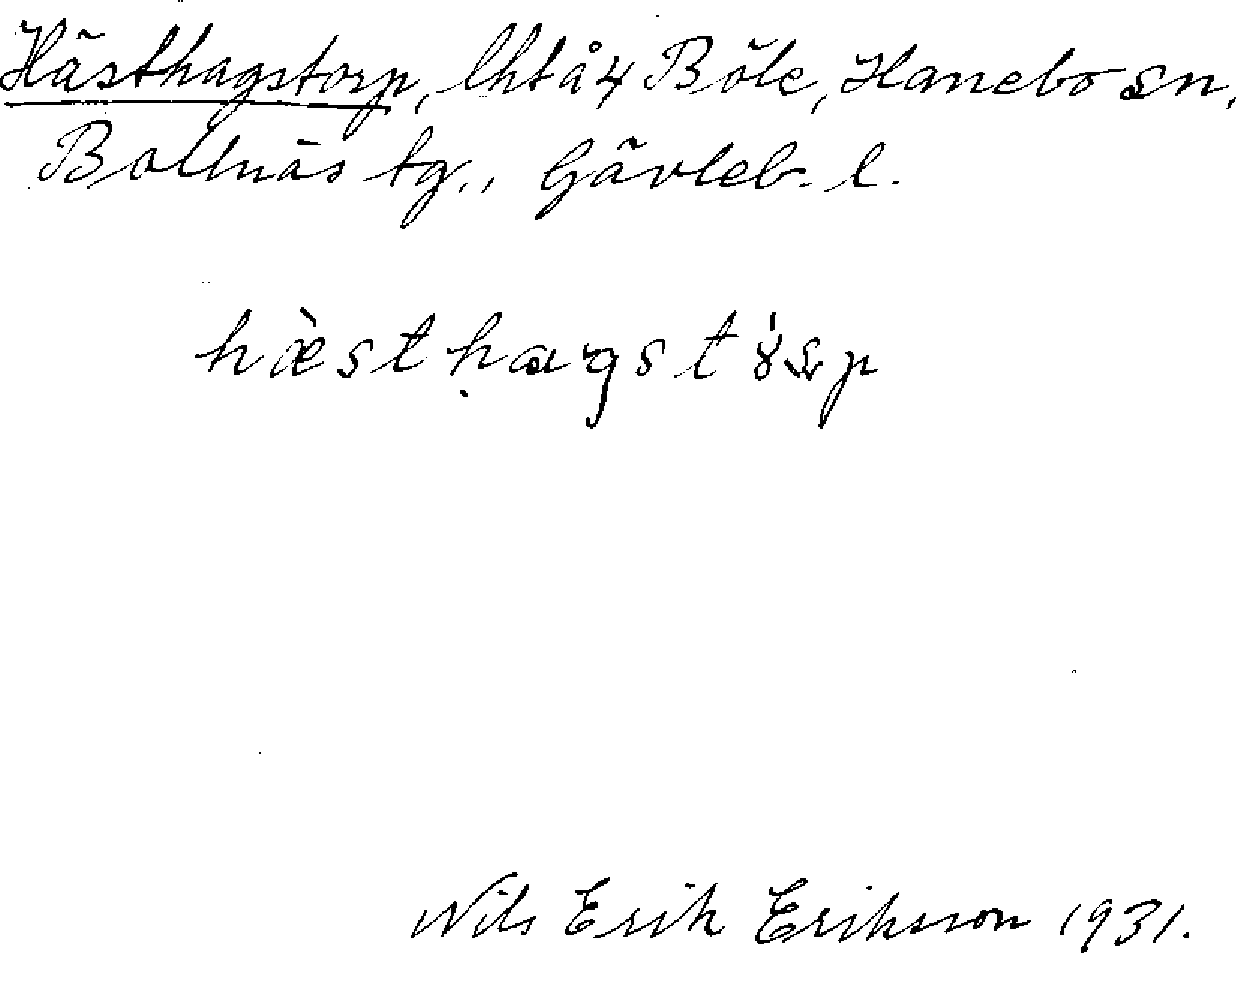 Hästhagstorp, lht å 4 Böle, Hanebo sn,
Bollnäs tg., Gävleb. l.
hæ̀stḥagstɤ́rp
Nils Erik Eriksson 1931.